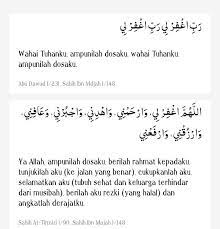 رَبِّ اغْفِرْ لِي رَبِّ اغْفِرْ لِي
Wahai Tuhanku, ampunilah dosaku, wahai Tuhanku,
ampunilah dosaku.
Abu Dawud 1/231, Sahih Ibn Majah 1/148
اَللَّهُمَّ اغْفِرْ لِي، وَارْحَمْنِي، وَاهْدِنِي، وَاجْبُرْنِي، وَعَافِنِي،
وَارْزُقْنِي، وَارْفَعْنِي
Ya Allah, ampunilah dosaku, berilah rahmat kepadaku,
tunjukilah aku (ke jalan yang benar), cukupkanlah aku,
selamatkan aku (tubuh sehat dan keluarga terhindar
dari musibah), berilah aku rezki (yang halal) dan
angkatlah derajatku.
Sahih At-Tirmizi 1/90, Sahih Ibn Majah 1/148